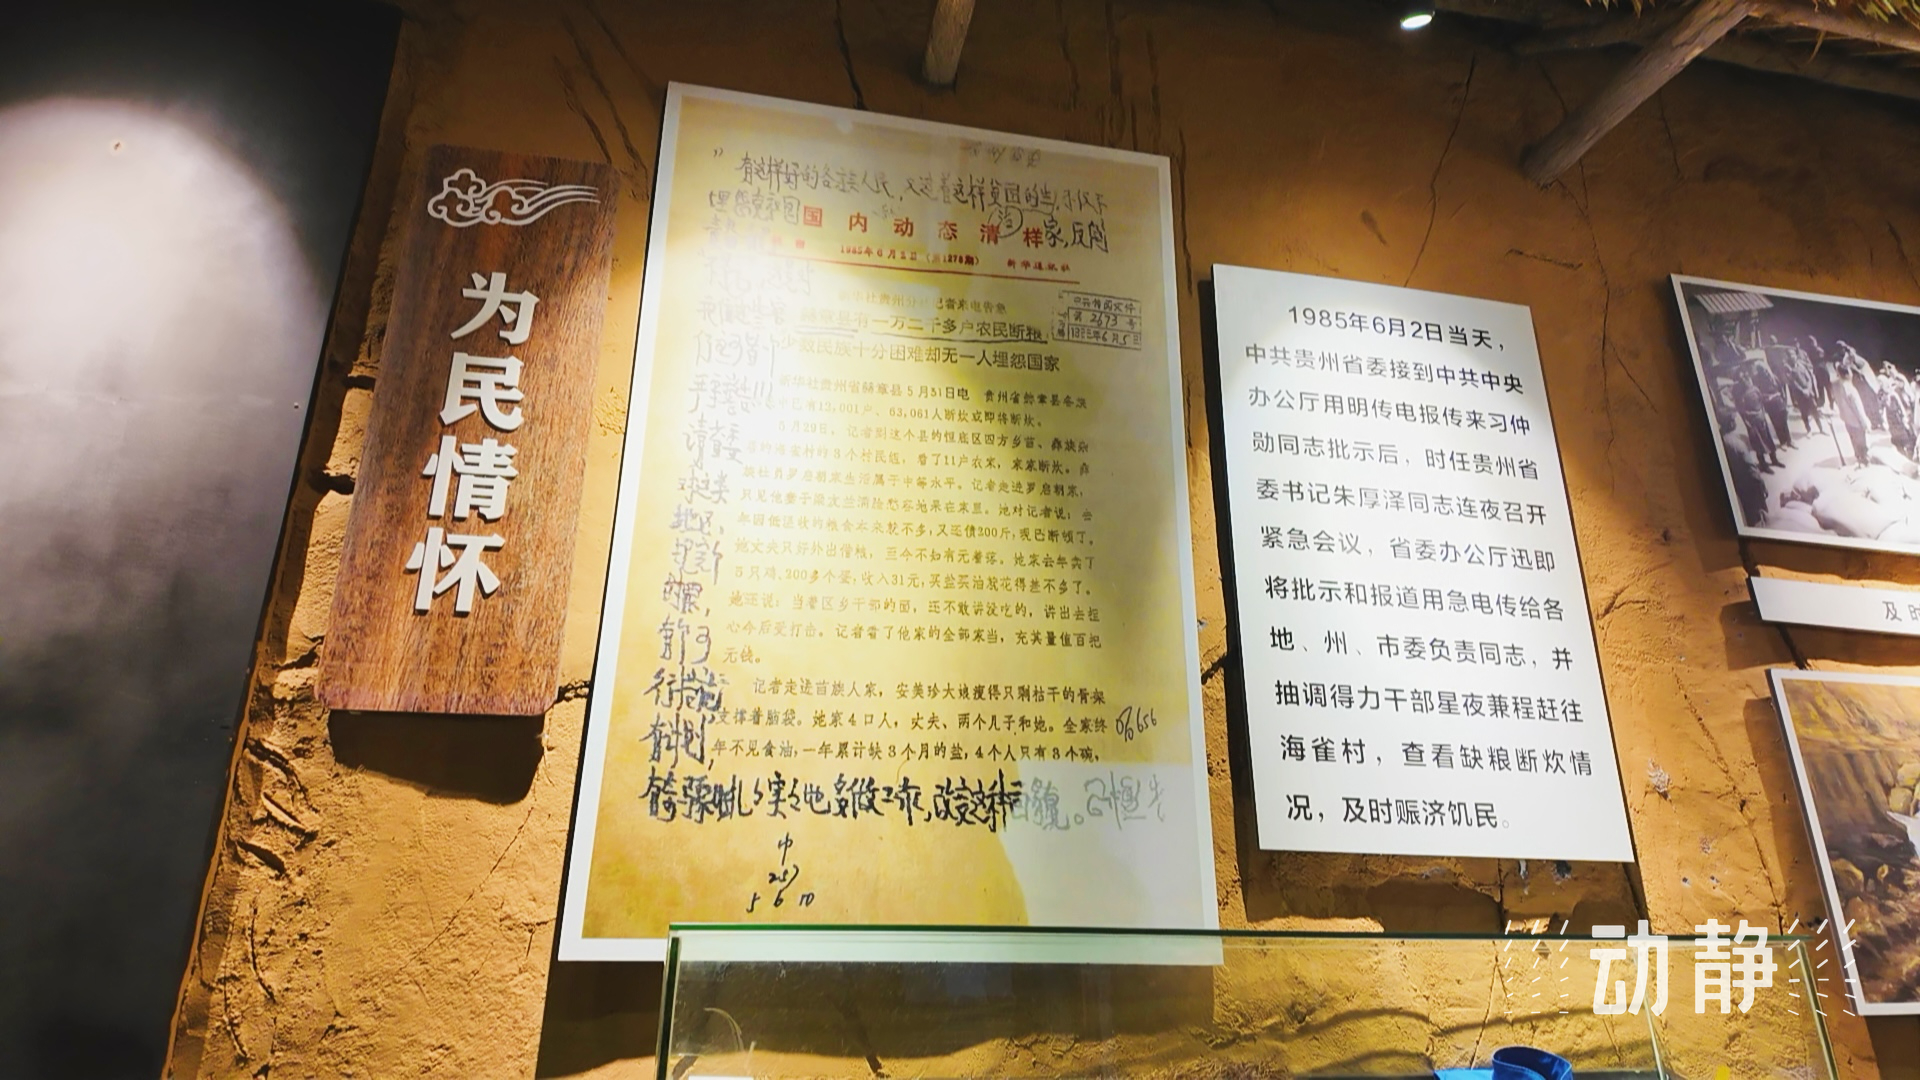 为民情怀
有这样好的各族人民，又过着这样贫困的生
国内动态清样
1985年6月2日（第1278期） 新华通讯社
2673
赫章县有一万二千多户农民断粮，
少数民族十分困难却无一人埋怨国家
新华社贵州省赫章县5月31日电 贵州省赫章县各族
已有12,001户、63,061人断炊或即将断炊。
5月29日，记者到这个县的恒底区四方乡苗、彝族杂
海雀村的3个村民组，看了11户农家，家家断炊。彝
族社员罗启朝家生活属于中等水平。记者走进罗启朝家，
只见他妻子梁友兰满脸愁容地呆在家里。她对记者说：去
年因低温收的粮食本来就不多，又还债300斤，现已断顿了。
她丈夫只好外出借粮，至今不知有无着落。她家去年卖了
5只鸡、200多个蛋，收入31元，买盐买油就花得差不多了。
她还说：当着区乡干部的面，还不敢讲没吃的，讲出去担
心今后受打击。记者看了他家的全部家当，充其量值百把
元钱。
记者走进苗族人家，安美珍大娘瘦得只剩枯干的骨架
支撑着脑袋。她家4口人，丈夫、两个儿子和她。全家终
年不见食油，一年累计缺3个月的盐，4个人只有3个碗，
1985年6月2日当天，
中共贵州省委接到中共中央
办公厅用明传电报传来习仲
勋同志批示后，时任贵州省
委书记朱厚泽同志连夜召开
紧急会议，省委办公厅迅即
将批示和报道用急电传给各
地、州、市委负责同志，并
抽调得力干部星夜兼程赶往
海雀村，查看缺粮断炊情
况，及时赈济饥民。
及时
动静